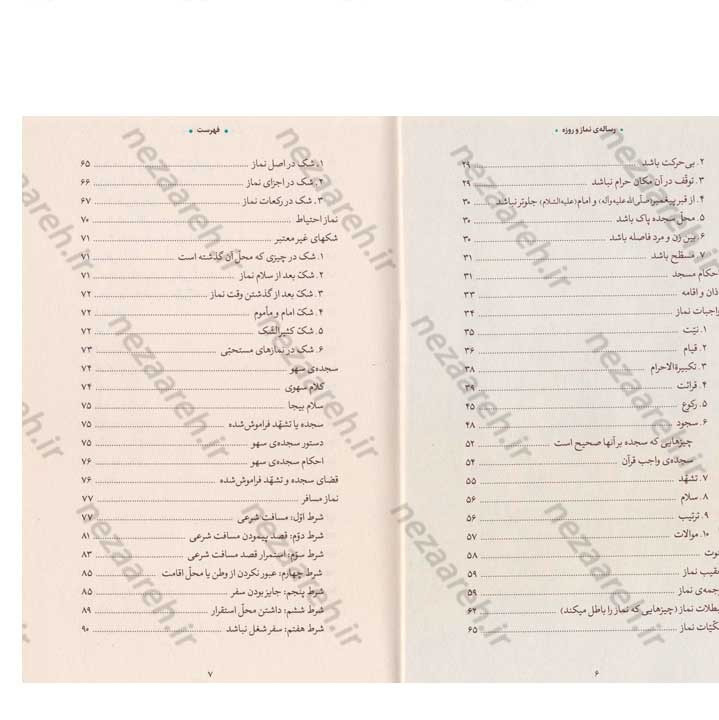 رساله‌ی نماز و روزه
۲. بی‌حرکت باشد ۲۹
۳. توقّف در آن مکان حرام نباشد ۲۹
۴. از قبر پیغمبر(صلّی‌الله‌علیه‌وآله) و امام(علیه‌السّلام) جلوتر نباشد ۳۰
۵. محلّ سجده پاک باشد ۳۰
۶. بین زن و مرد فاصله باشد ۳۰
۷. مسطّح باشد ۳۱
حکام مسجد ۳۱
ذان و اقامه ۳۳
اجبات نماز ۳۴
۱. نیّت ۳۵
۲. قیام ۳۶
۳. تکبیرةالاحرام ۳۸
۴. قرائت ۳۹
۵. رکوع ۴۵
۶. سجود ۴۸
چیزهایی که سجده بر آنها صحیح است ۵۲
سجده‌ی واجب قرآن ۵۴
۷. تشهّد ۵۵
۸. سلام ۵۶
۹. ترتیب ۵۶
۱۰. موالات ۵۷
نوت ۵۸
عقیب نماز ۵۹
رجمه‌ی نماز ۵۹
بطلات نماز (چیزهایی که نماز را باطل میکند) ۶۲
کّیّات نماز ۶۵
۶
فهرست
۱. شک در اصل نماز ۶۵
۲. شک در اجزای نماز ۶۶
۳. شک در رکعات نماز ۶۷
نماز احتیاط ۷۰
شکهای غیر معتبر ۷۱
۱. شک در چیزی که محلّ آن گذشته است ۷۱
۲. شکّ بعد از سلام نماز ۷۱
۳. شکّ بعد از گذشتن وقت نماز ۷۲
۴. شکّ امام و مأموم ۷۲
۵. شکّ کثیرالشّک ۷۲
۶. شک در نمازهای مستحبّی ۷۳
سجده‌ی سهو ۷۴
کلام سهوی ۷۴
سلام بیجا ۷۵
سجده یا تشهّد فراموش‌شده ۷۵
دستور سجده‌ی سهو ۷۵
احکام سجده‌ی سهو ۷۶
قضای سجده و تشهّد فراموش‌شده ۷۶
نماز مسافر ۷۷
شرط اوّل: مسافت شرعی ۷۷
شرط دوّم: قصد پیمودن مسافت شرعی ۸۱
شرط سوّم: استمرار قصد مسافت شرعی ۸۳
شرط چهارم: عبور نکردن از وطن یا محلّ اقامت ۸۵
شرط پنجم: جایز بودن سفر ۸۵
شرط ششم: داشتن محلّ استقرار ۸۹
شرط هفتم: سفر شغل نباشد ۹۰
۷
nezaareh.ir